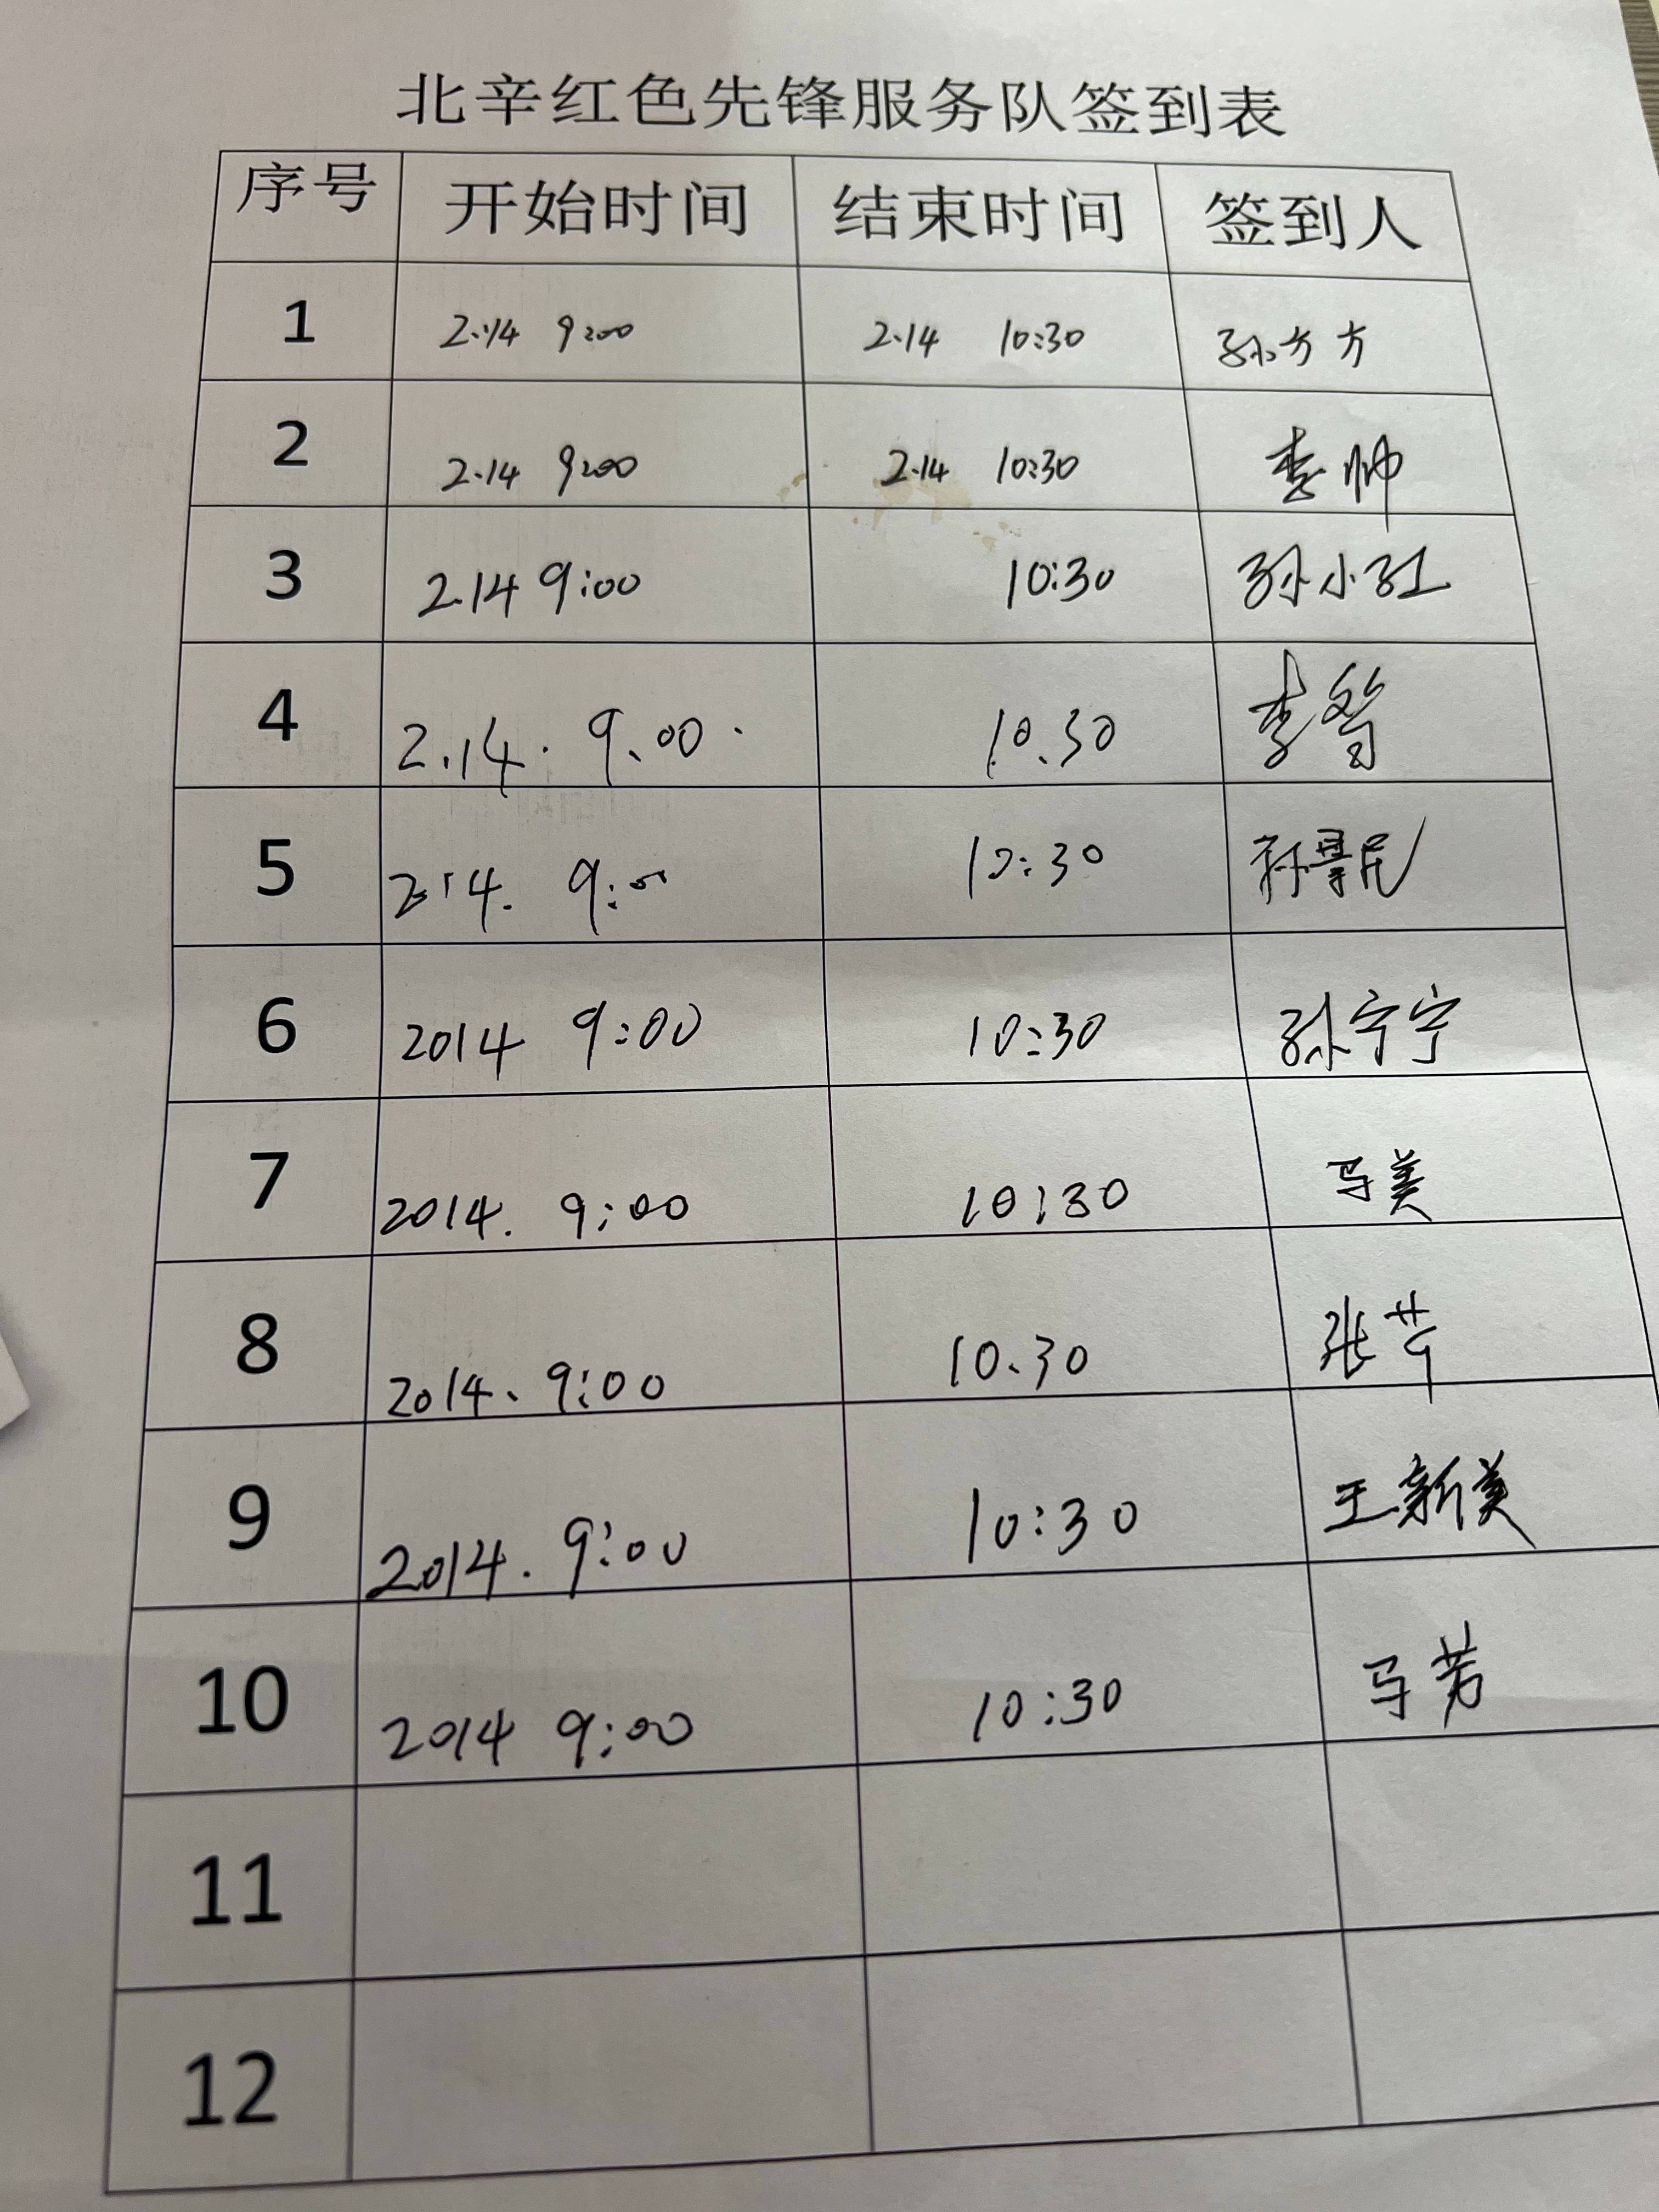 北辛红色先锋服务队签到表
序号 开始时间 结束时间 签到人
1 2.14 9:00 2.14 10:30 孙方方
2 2.14 9:00 2.14 10:30 李帅
3 2.14 9:00 10:30 孙小红
4 2.14. 9.00. 10.30 李
5 2.14. 9:00 10:30 孙
6 2014 9:00 10:30 孙宁宁
7 2014. 9:00 10:30 马美
8 2014. 9:00 10.30 张
9 2014. 9:00 10:30 王新美
10 2014 9:00 10:30 马芳
11
12